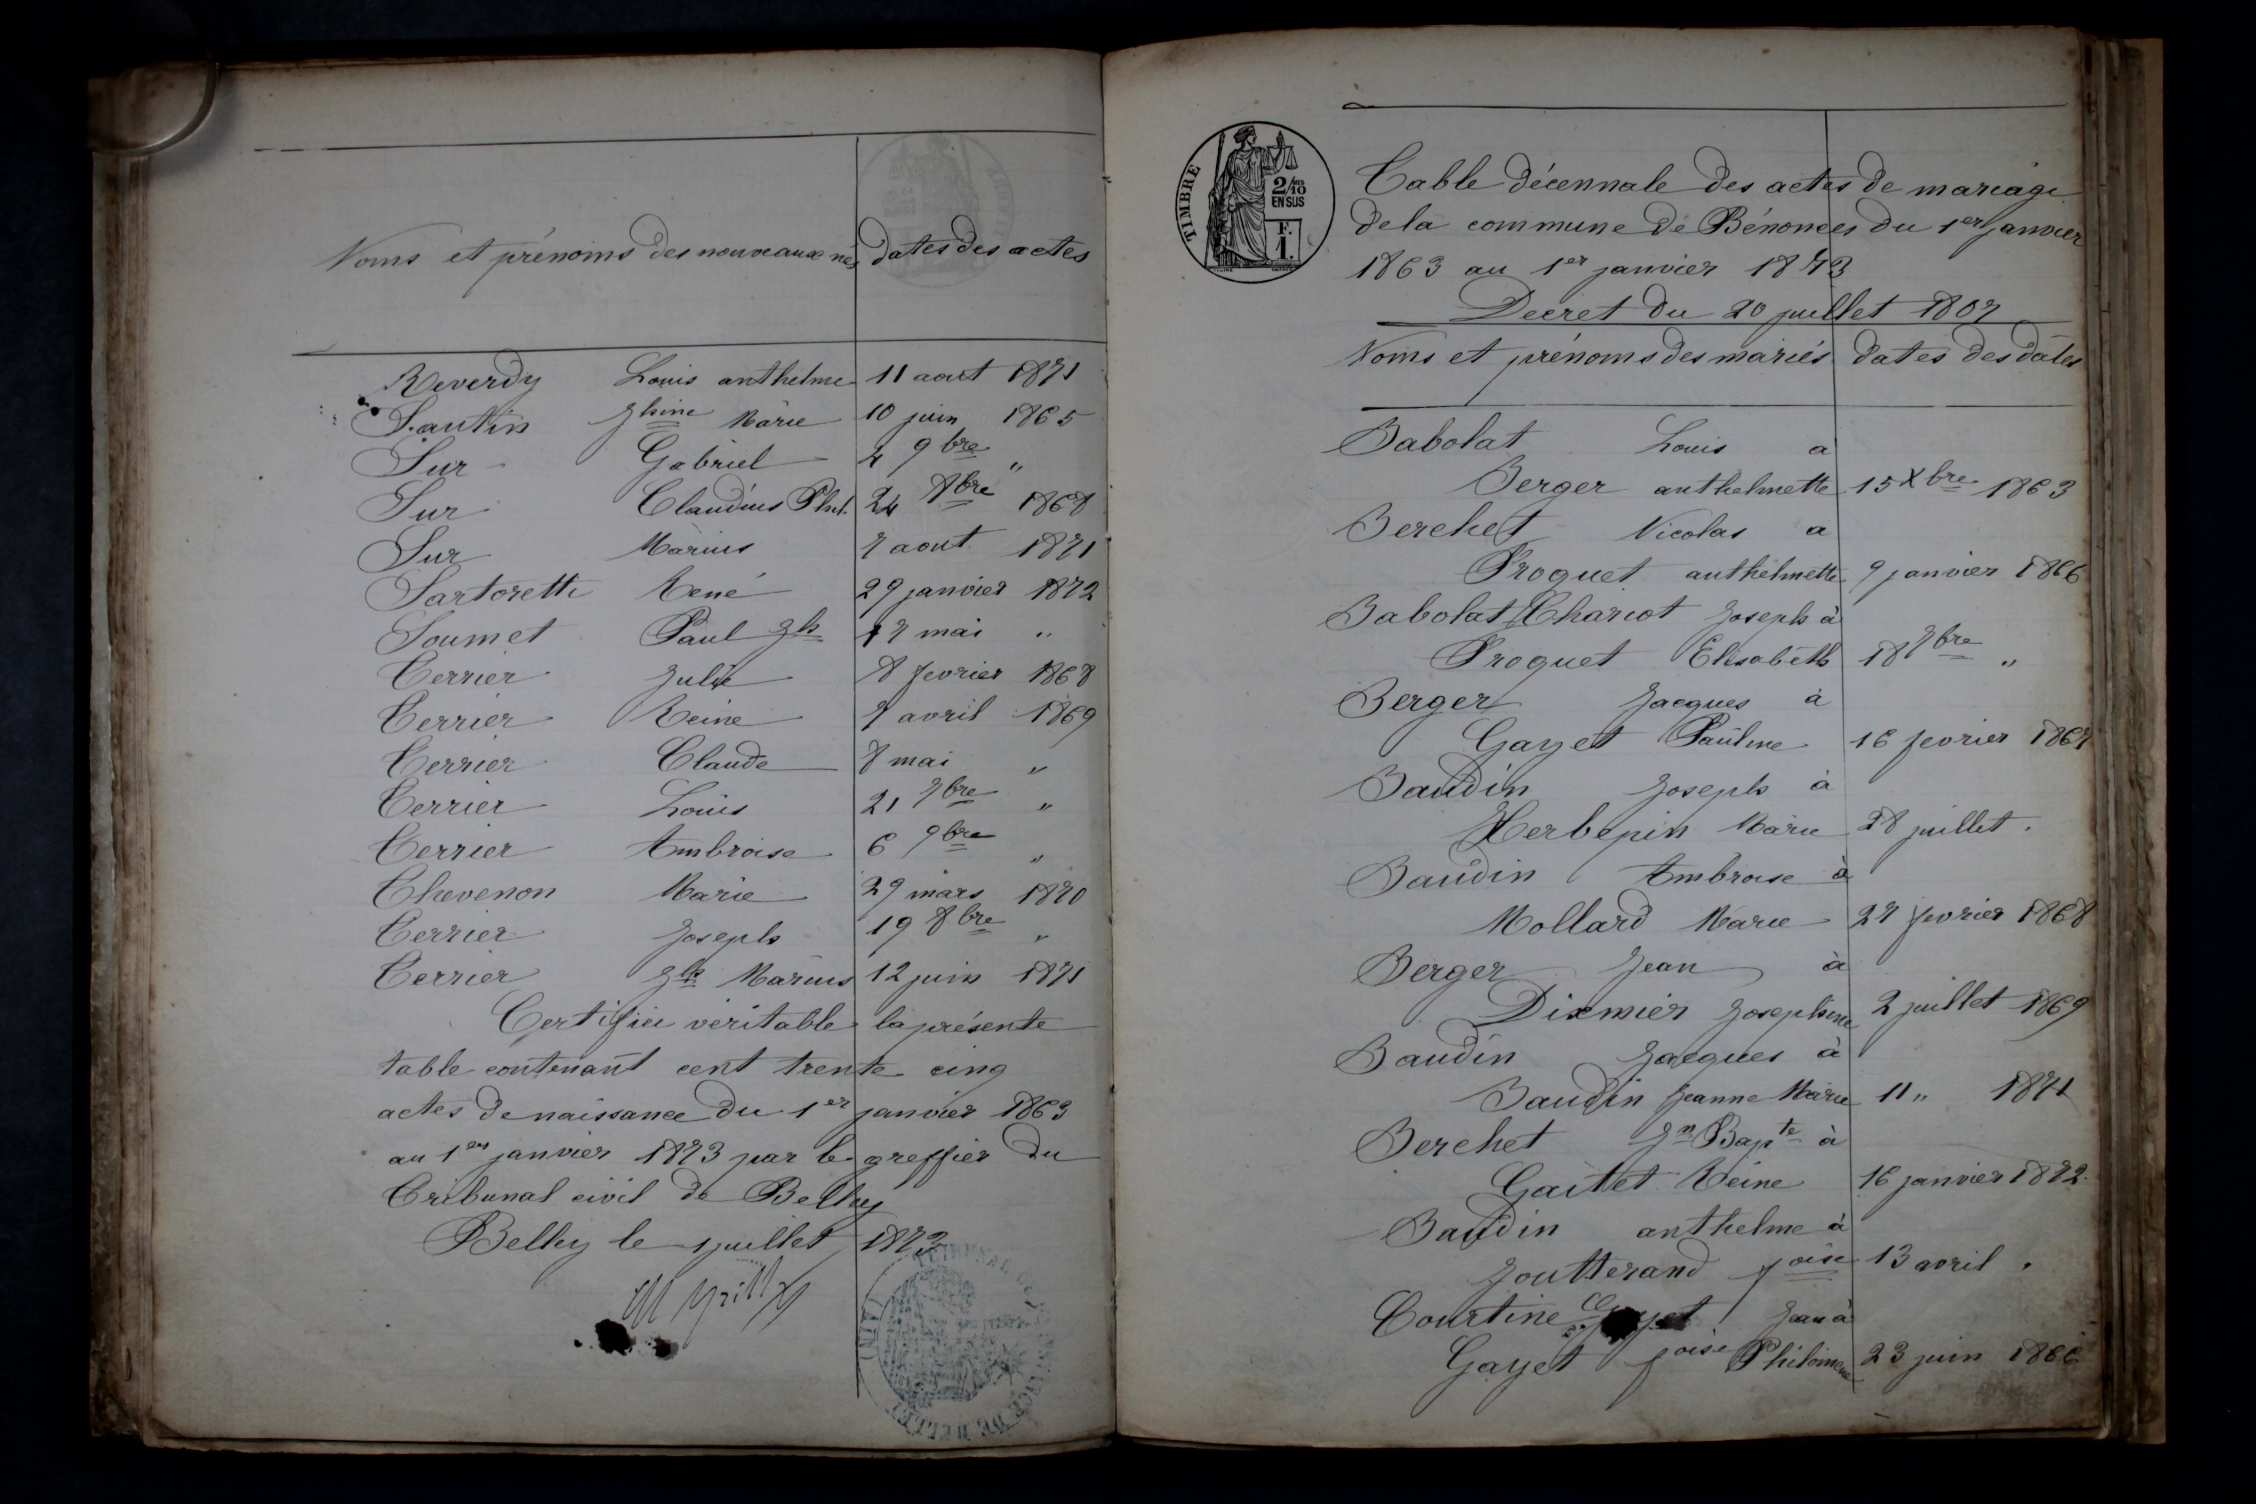 Noms et prénoms des nouveaux nés dates des actes
Reverdy Louis anthelme 11 aout 1871
Santin Jhine Marie 10 juin 1865
Sur Gabriel 4 9bre "
Sur Claudius Phil. 24 8bre 1868
Sur Marius 7 aout 1871
Sartoretti René 29 janvier 1872
Soumet Paul Jh 17 mai "
Terrier Julie 8 fevrier 1868
Terrier Reine 7 avril 1869
Terrier Claude 8 mai "
Terrier Louis 21 7bre "
Terrier Ambroise 6 9bre "
Thevenon Marie 29 mars 1870
Terrier Joseph 19 8bre "
Terrier Jh Marius 12 juin 1871
Certifiée véritable la présente
table contenant cent trente cinq
actes de naissance du 1er janvier 1863
au 1er janvier 1873 par le greffier du
Tribunal civil de Belley
Belley le juillet 1873
TIMBRE
2/10
EN SUS
F.
1.
Table décennale des actes de mariage
de la commune de Bénonces du 1er janvier
1863 au 1er janvier 1873
Decret du 20 juillet 1807
Noms et prénoms des mariés dates des dates
Babolat Louis a
Berger anthelmette 15 Xbre 1863
Berchet Nicolas a
Proquet anthelmette 9 janvier 1866
Babolat Chariot Joseph à
Proquet Elisabeth 18 7bre "
Berger Jacques à
Gayet Pauline 16 fevrier 1867
Baudin Joseph à
Herbepin Marie 28 juillet "
Baudin Ambroise à
Mollard Marie 27 fevrier 1868
Berger Jean à
Dixmier Josephine 2 juillet 1869
Baudin Jacques à
Baudin Jeanne Marie 11 " 1871
Berchet Jn Bapte à
Gaitet Reine 16 janvier 1872
Baudin anthelme à
Joutterand foise 13 avril "
Courtine Jean à
Gayet foise Philomene 23 juin 1866